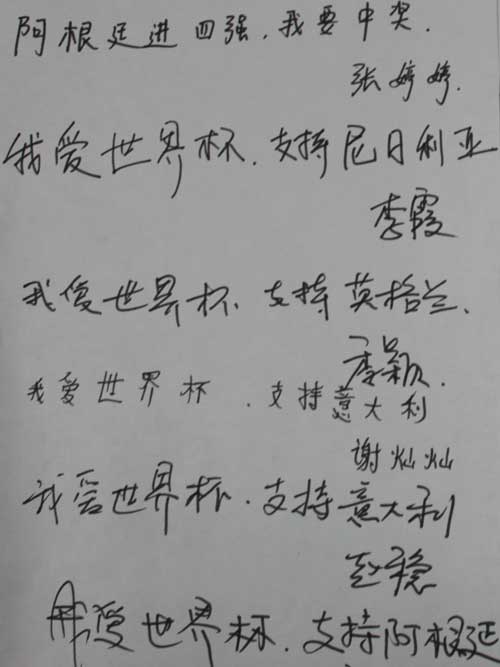 阿根廷进四强，我要中奖.
张婷婷.
我爱世界杯.支持尼日利亚
李霞
我爱世界杯.支持英格兰.
李颖.
我爱世界杯.支持意大利
谢灿灿
我爱世界杯.支持意大利
赵稳
我爱世界杯.支持阿根廷